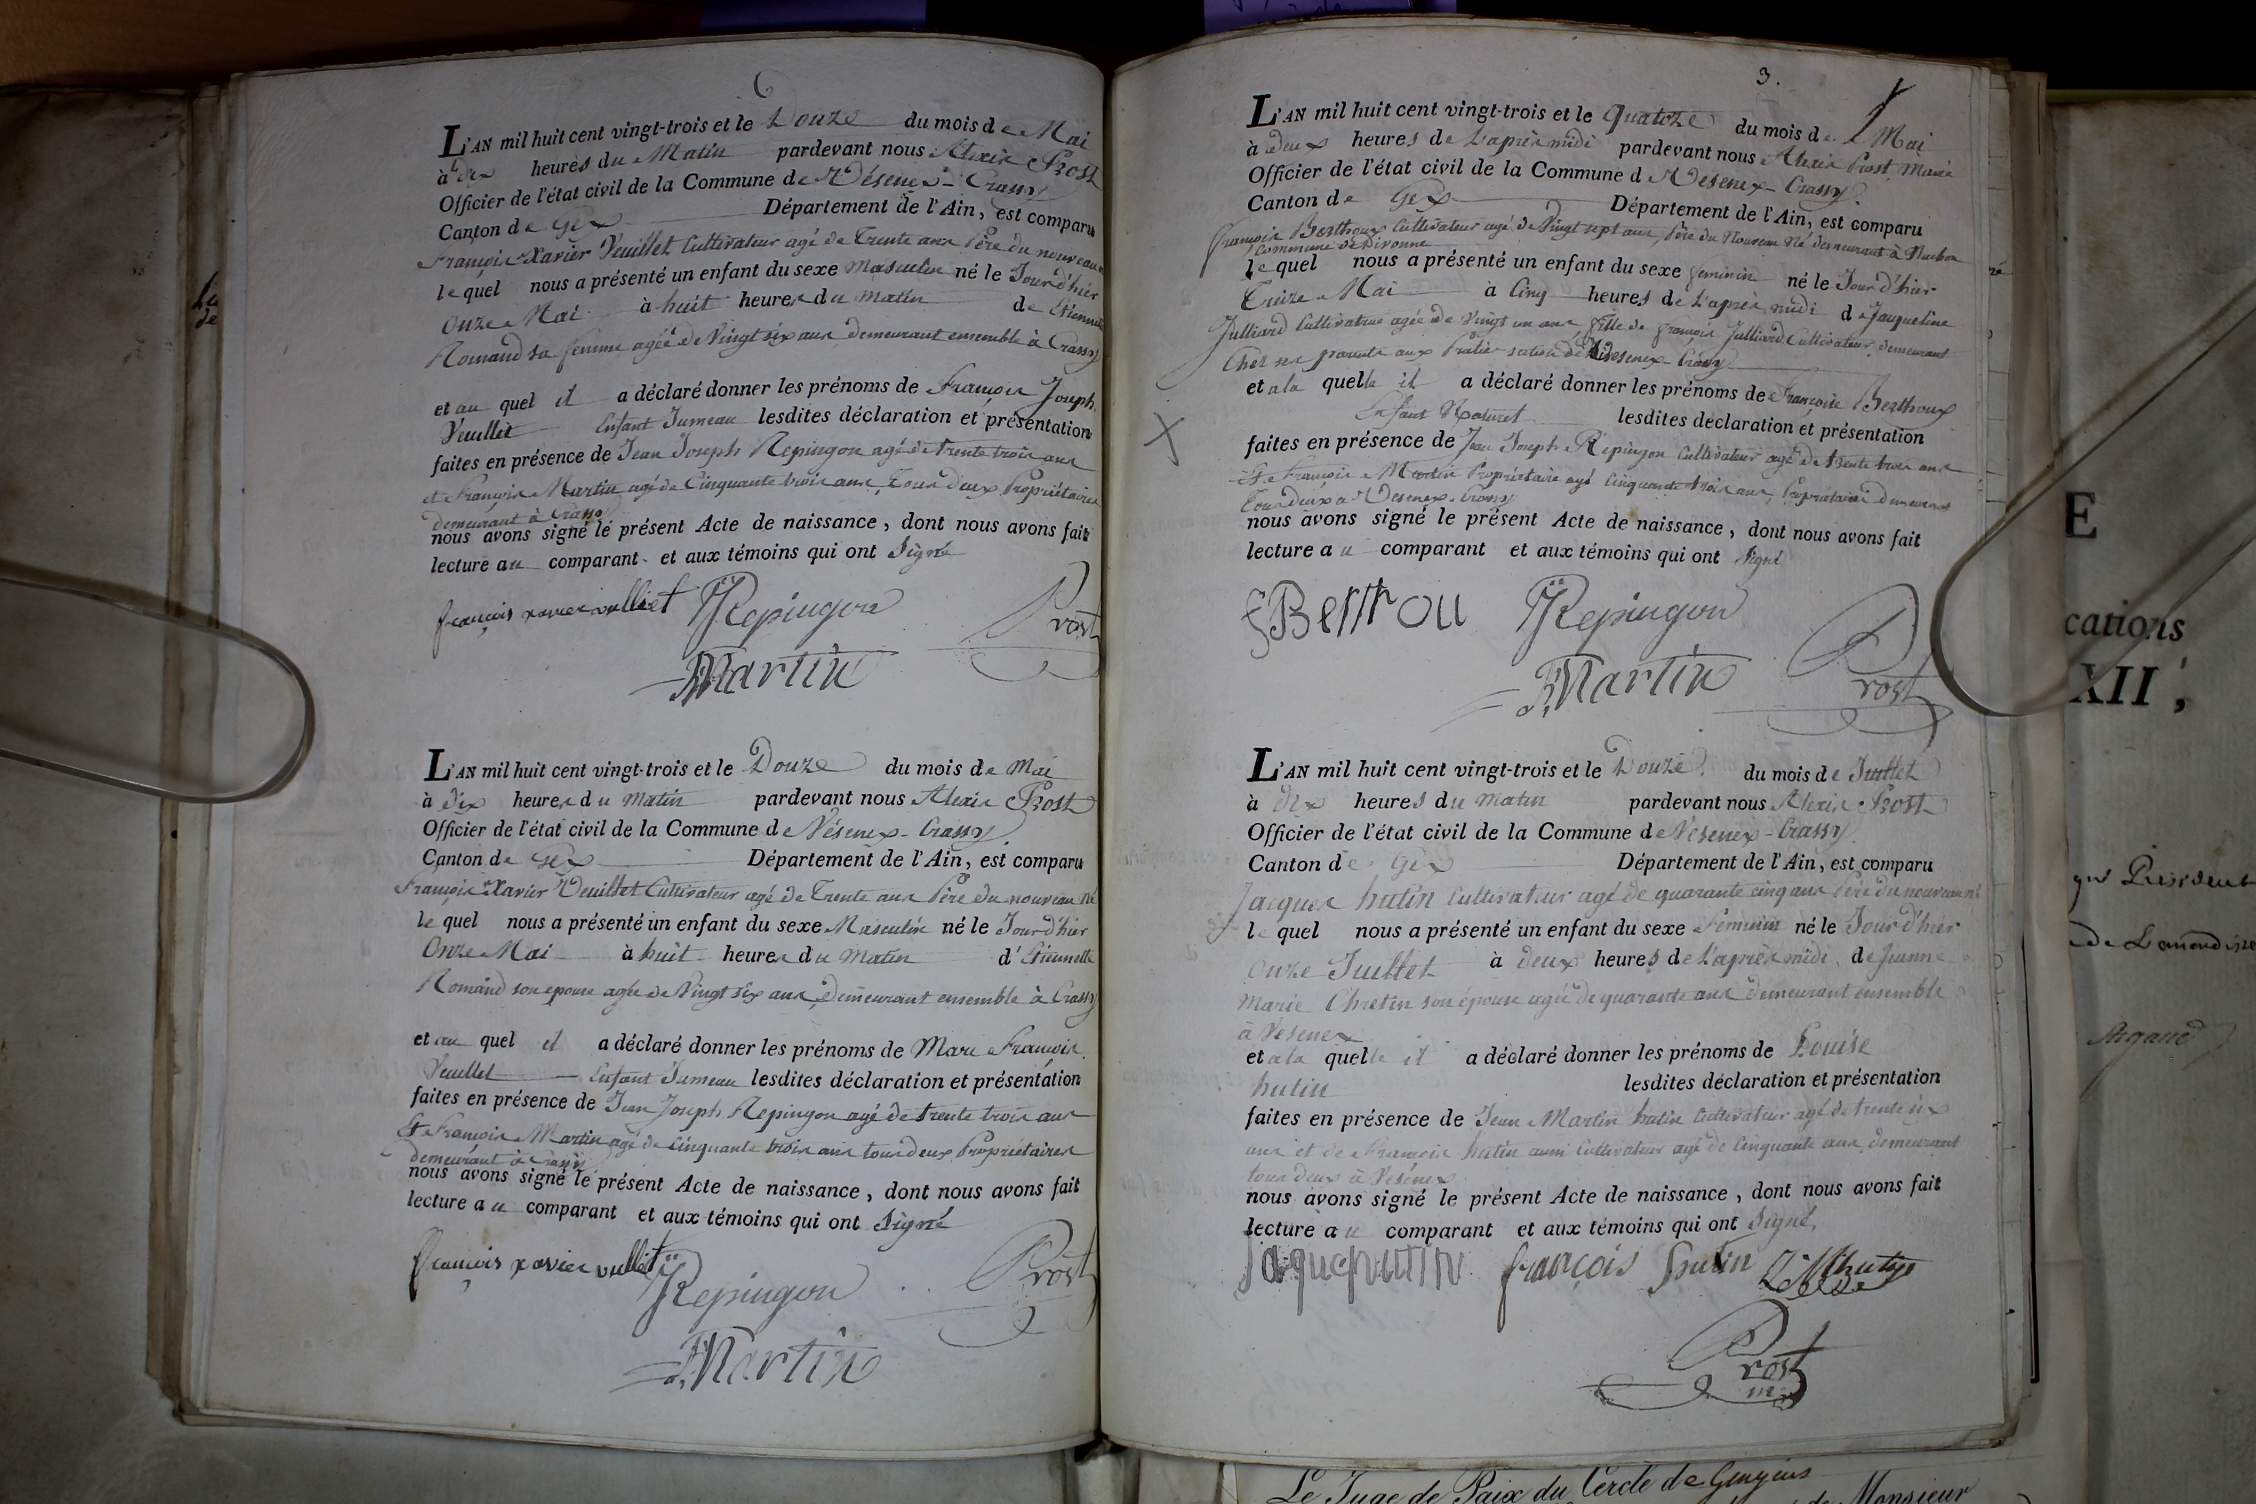 L'AN mil huit cent vingt-trois et le Douze du mois de Mai
à dix heures du Matin pardevant nous Alexis Prost
Officier de l'état civil de la Commune de Vésenex-Crassy
Canton de Gex Département de l'Ain, est comparu
François Xavier Vuillet Cultivateur agé de Trente ans Père du nouveau
le quel nous a présenté un enfant du sexe Masculin né le Jour d'hier
Onze Mai à huit heures du Matin de Etiennette
Romand sa femme agée de Vingt six ans demeurant ensemble à Crassy
et au quel il a déclaré donner les prénoms de François Joseph
Vuillet Enfant Jumeau lesdites déclaration et présentation
faites en présence de Jean Joseph Repingon agé de trente trois ans
et François Martin agé de Cinquante trois ans, Tous deux Propriétaires
demeurant à Crassy
nous avons signé le présent Acte de naissance, dont nous avons fait
lecture au comparant et aux témoins qui ont Signé
françois xavier vulliet JJRepingon Prost
Martin
L'AN mil huit cent vingt-trois et le Douze du mois de Mai
à dix heures du Matin pardevant nous Alexis Prost
Officier de l'état civil de la Commune de Vésenex-Crassy
Canton de Gex Département de l'Ain, est comparu
François Xavier Veuillet Cultivateur agé de Trente ans Père du nouveau Né
le quel nous a présenté un enfant du sexe Masculin né le Jour d'hier
Onze Mai à huit heures du Matin d'Etiennette
Romand son epouse agée de Vingt six ans demeurant ensemble à Crassy
et au quel il a déclaré donner les prénoms de Marc François
Vuillet Enfant Jumeau lesdites déclaration et présentation
faites en présence de Jean Joseph Repingon agé de trente trois ans
Et François Martin agé de cinquante trois ans tous deux Propriétaires
demeurant à Crassy
nous avons signé le présent Acte de naissance, dont nous avons fait
lecture au comparant et aux témoins qui ont Signé
françois xavier vulliet JJRepingon Prost
Martin
3.
L'AN mil huit cent vingt-trois et le Quatorze du mois de Mai
à deux heures de L'après midi pardevant nous Alexis Prost Maire
Officier de l'état civil de la Commune de Vesenex-Crassy
Canton de Gex Département de l'Ain, est comparu
François Berthoux Cultivateur agé de Vingt sept ans, Père du Nouveau Né demeurant à
Commune de Divonne
le quel nous a présenté un enfant du sexe feminin né le Jour d'hier
Treize Mai à Cinq heures de L'après midi de Jaqueline
Julliard Cultivatrice agée de Vingt un ans fille de françois Julliard Cultivateur, demeurant
Chez ses parents aux section de Vésenex Crassy
et a la quelle il a déclaré donner les prénoms de Françoise Berthoux
Enfant Naturel lesdites déclaration et présentation
faites en présence de Jean Joseph Repingon Cultivateur agé de trente trois ans
Et François Martin Propriétaire agé Cinquante trois ans, Propriétaire demeurant
Tous deux a Vesenex-Crassy
nous avons signé le présent Acte de naissance, dont nous avons fait
lecture au comparant et aux témoins qui ont Signé
fBertrou JJRepingon
Martin Prost
L'AN mil huit cent vingt-trois et le Douze du mois de Juillet
à dix heures du matin pardevant nous Alexis Prost
Officier de l'état civil de la Commune de Vésenex-Crassy
Canton de Gex Département de l'Ain, est comparu
Jacques hutin Cultivateur agé de quarante cinq ans Père du nouveau né
le quel nous a présenté un enfant du sexe Feminin né le Jour d'hier
Onze Juillet à deux heures de L'après midi, de Jeanne
Marie Chretin son épouse agée de quarante ans demeurant ensemble
à Vesenex
et a la quelle il a déclaré donner les prénoms de Louise
hutin lesdites déclaration et présentation
faites en présence de Jean Martin hutin Cultivateur agé de trente six
ans et de François hutin aussi Cultivateur agé de Cinquante ans, demeurant
tous deux à Vésenex
nous avons signé le présent Acte de naissance, dont nous avons fait
lecture au comparant et aux témoins qui ont Signé,
françois hutin
Prost
E
cations
XII;
Président
Le Juge de Paix du Cercle de Gingins
de Monsieur